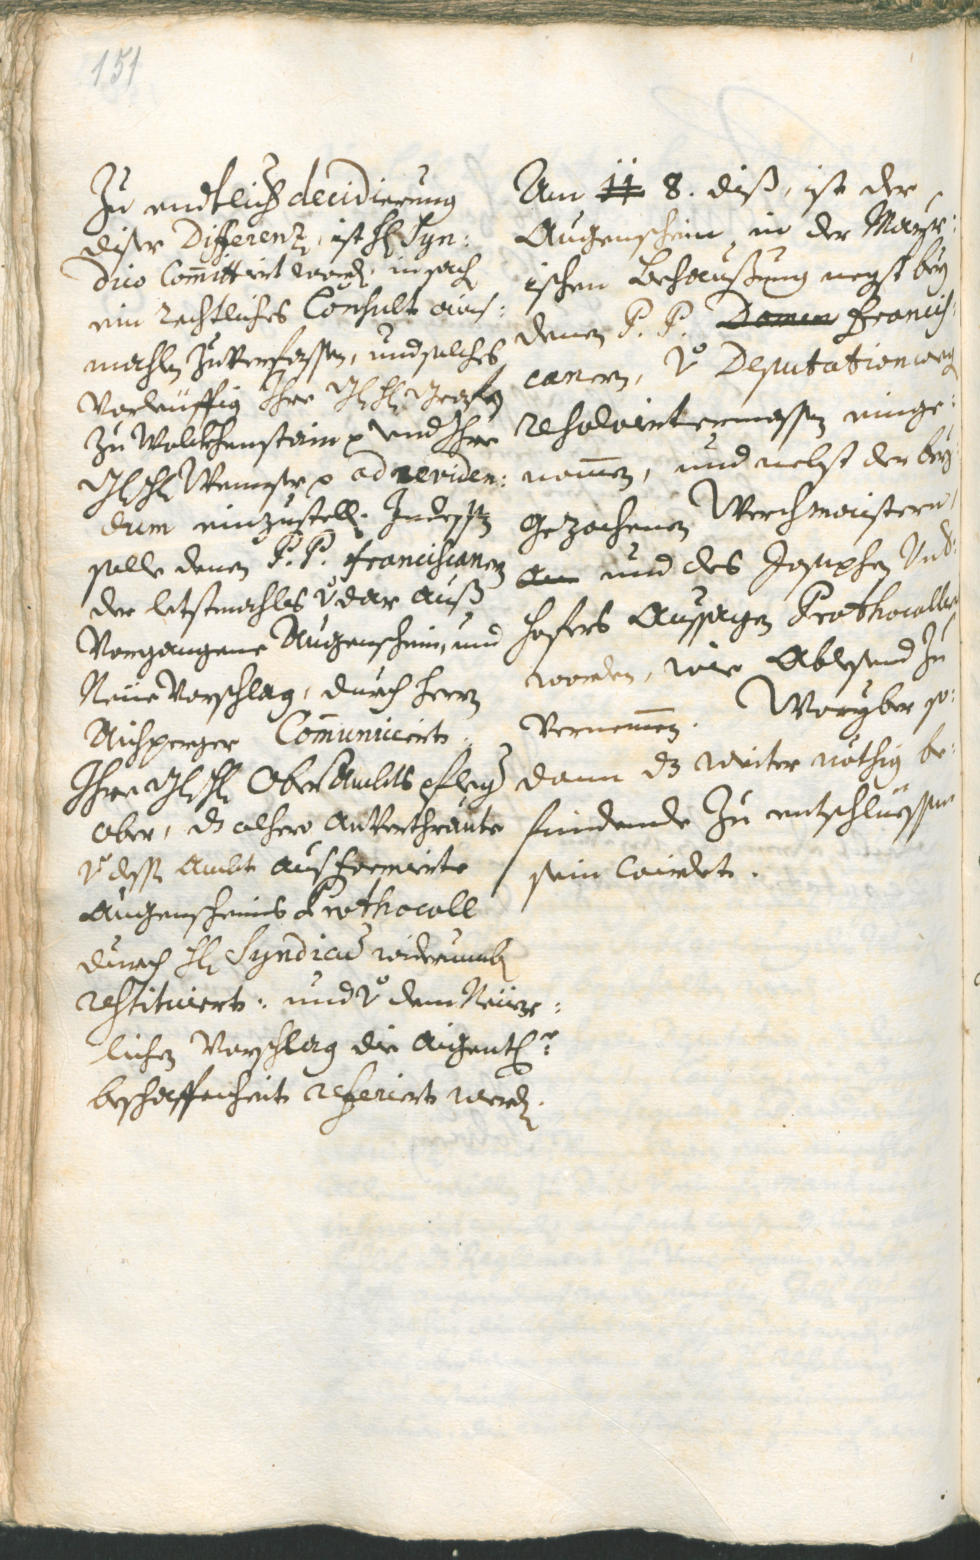 151
Zu endtlich decidierung
diser Differenz, ist H: Syn:
dico Committirt word: in sach
ein rechtliches Consult ains:
mahls zuverfassen, und solches
vorleüffig Ihre
zu Wolkhenstain p und Ihro
p ad reviden:
dum einzustell: Indessen
solle denen P. P. Franciscanern
der letstmahls darauß
Vorgangene Augenschein, und
Neüe Vorschlag, durch herrn
Aichperger Communiciert.
Ihro Ober Ambts pfleg
ober, dz alhero anverthraute
v dess Ambt aus formirte
Augenscheins Prothocoll
durch H: Syndicus widerumb
restituiert: und v dem Neüer:
lichen Vorschlag die Aigentl:
beschaffenheit referiert werd.
Am 8. diß, ist der
Augenschein in der Mayr:
ischen Behaußung negst bey
denen P. P. Damen Francis:
canern, v Deputation weg
resolviertermassen einge:
nommen, und nebst der bey
gezochenen Werchmaistern,
und des Josephen Und:
hofers Aussagen Prothocolliert
worden, wie Ablesend zu
Vernemmen. Woryber so:
dann dz weiter nöthig be:
findende zu entschliessen
sein wirdet.